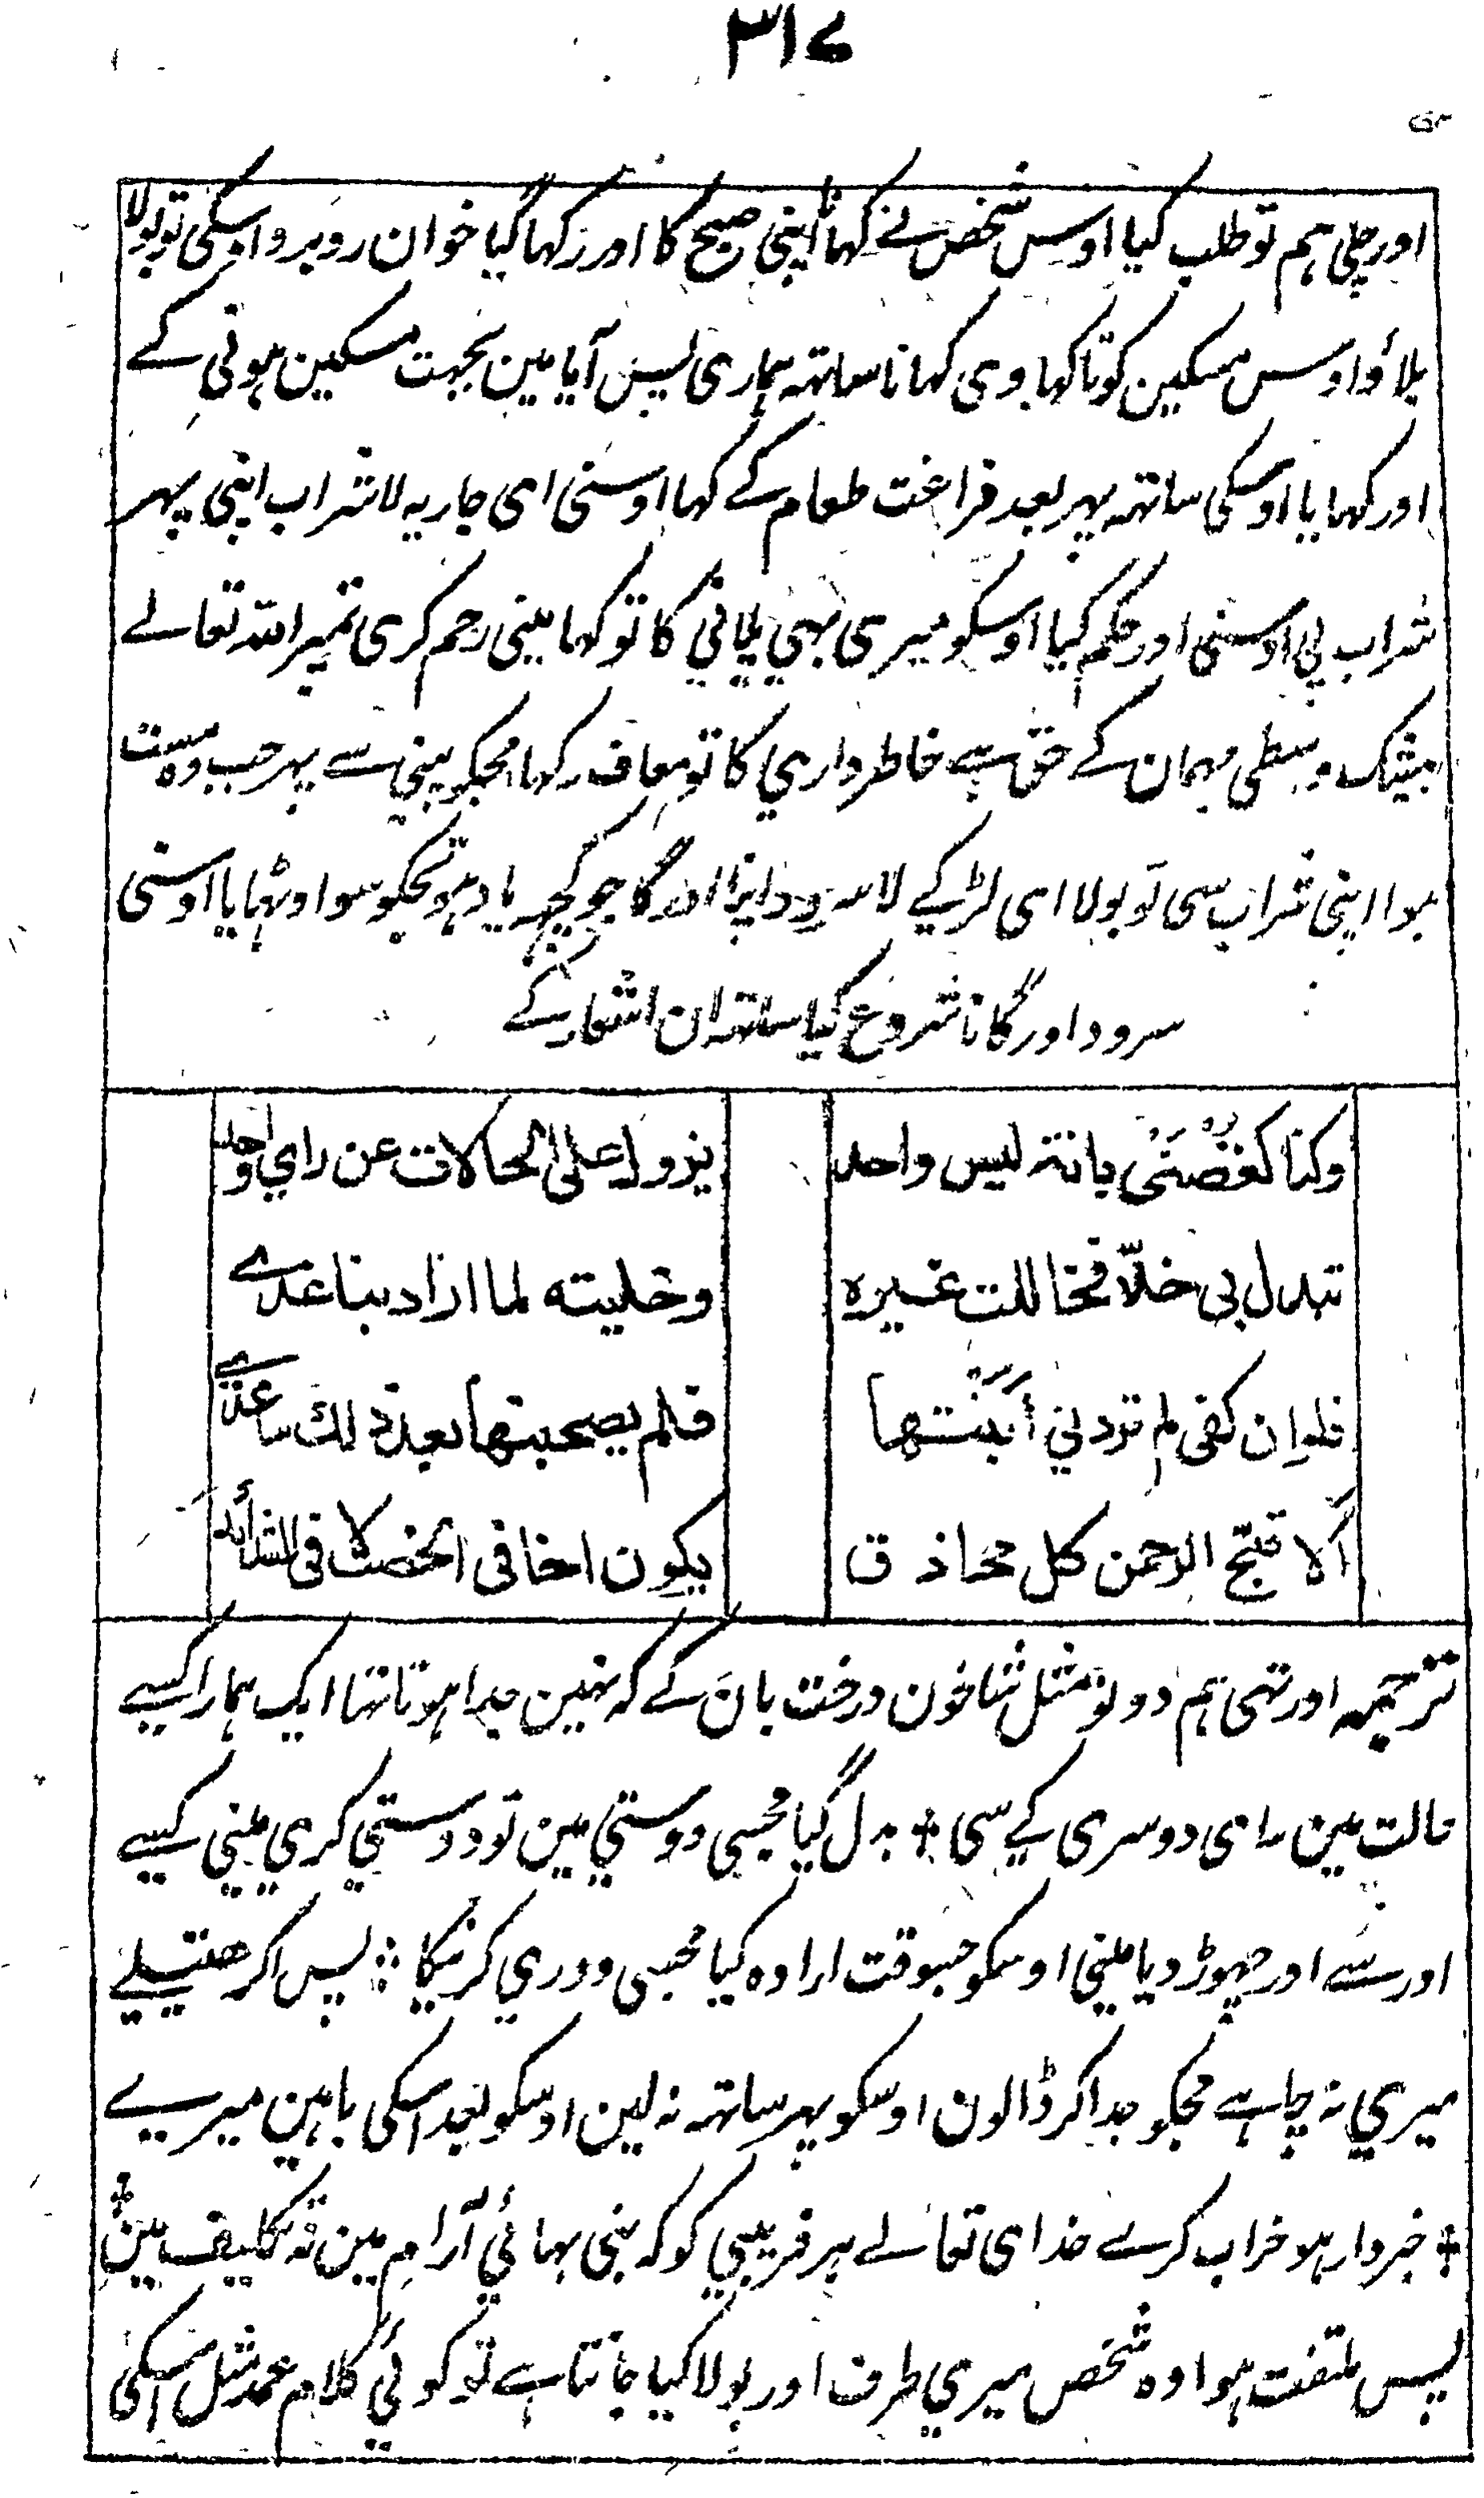 ۳۱۷
اور چلی ہم تو طلب کیا اوس شخص نے کھانا اپنی صبح کا اور رکھا گیا خوان روبرو اوسکی تو بولا
بلاؤ اوس مسکین کو تا کھاوی کھانا ساتھہ ہماری پس آیا مین بجہت مسکین ہونی کے
اور کھایا اوسکی ساتھہ پہر بعد فراغت طعام کے کہا اوسنی ای جاریہ لا شراب اپنی پہر
شراب پی اوسنی اور حکم کیا اوسکو میری بہی پلانی کا تو کہا مینی رحم کری تمپر اللہ تعالے
بیشک واسطی مہمان کے حق ہے خاطرداری کا تو معاف رکھا مجکو پینی سے پہر جب وہ مست
ہوا اپنی شراب سی تو بولا ای لڑکے لا سرود اپنا اور گا جو کچہہ یاد ہو تجکو سو اوٹھایا اوسنی
سرود اور گانا شروع کیا ساتھہ ان اشعار کے
وکنا کغصنی بانة لیس واحد
یزول علی الحالات عن رای واحد
تبدل بی خلّا فخاللت غیره
وخلیته لما اراد تباعدے
فلو ان کفی لم تردنی أبنتها
فلم یصحبتها بعد ذلك ساعدے
ألا قبّح الرحمن کل مماذق
یکون اخا فی الخفض لا فی الشدائد
ترجمہ اور تہی ہم دونو مثل شاخون درخت بان کے کہ نہین جدا ہوتا تہا ایک ہمارا کسے
حالت مین رای دوسری کے سی ٭ بدل گیا مجسی دوستی مین تو دوستی کری مینی کسے
اور سے اور چہوڑ دیا مینی اوسکو جسوقت ارادہ کیا مجسی دوری کرنیکا ؛ پس اگر ہتیلے
میری نہ چاہے مجکو جدا کر ڈالون اوسکو پہر ساتھہ نہ لین اوسکو بعد اسکی باہین میرے
٭ خبردار ہو خراب کرے خدای تعالے ہر فریبی کو کہ بنی بہائی آرام مین نہ تکلیف مین ٭
پس ملتفت ہوا وہ شخص میری طرف اور بولا کیا جانتا ہے تو کوئی کلام عمدہ مثل اسکی